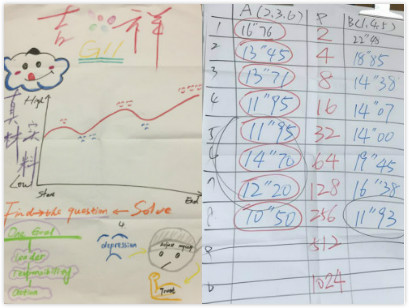 吉 祥
真材实料
High
Low
Start End
Find the question ← Solve
One Goal
leader
responsibility
Action
depression
Trust
A (2.3.6) P B(1.4.5)
16"76 2
2 13"45 4 18"85
3 13"71 8 14"38
4 11"95 16 14"07
5 11"95 32 14"00
6 14"70 64 19"45
7 12"20 128 16"38
8 10"50 256 11"93
512
1024